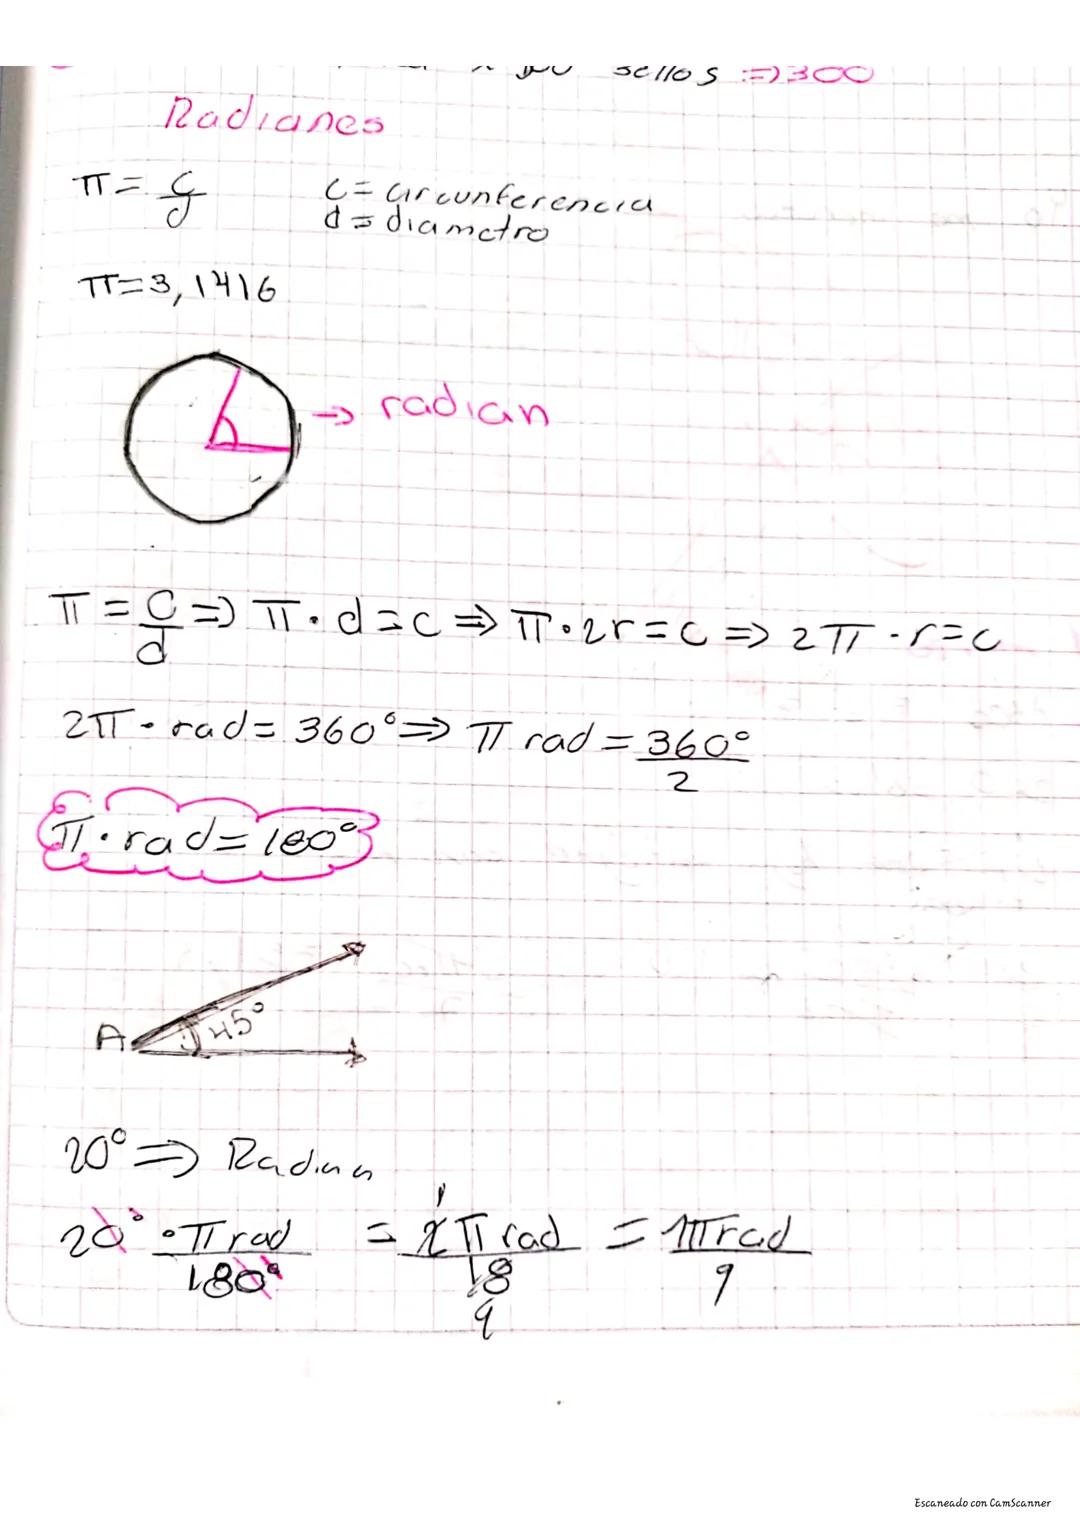 sellos => 300
Radianes
π = c/d c = circunferencia
d = diametro
π = 3,1416
→ radian
π = c/d => π · d = c => π · 2r = c => 2π · r = c
2π · rad = 360° => π rad = 360°/2
π · rad = 180°
A 45°
20° => Radian
20° · π rad/180° = 2 1 π rad/18 9 = 1π rad/9
Escaneado con CamScanner